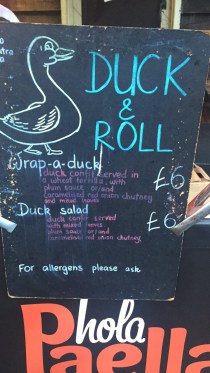 DUCK
&
ROLL
Wrap-a-duck
duck confit served in
a wheat tortilla, with
plum sauce and/or
caramelised red onion chutney
and mixed leaves
£6
Duck salad
duck confit served
with mixed leaves,
plum sauce and/or
caramelised red onion chutney
£6
For allergens please ask
hola
Paella